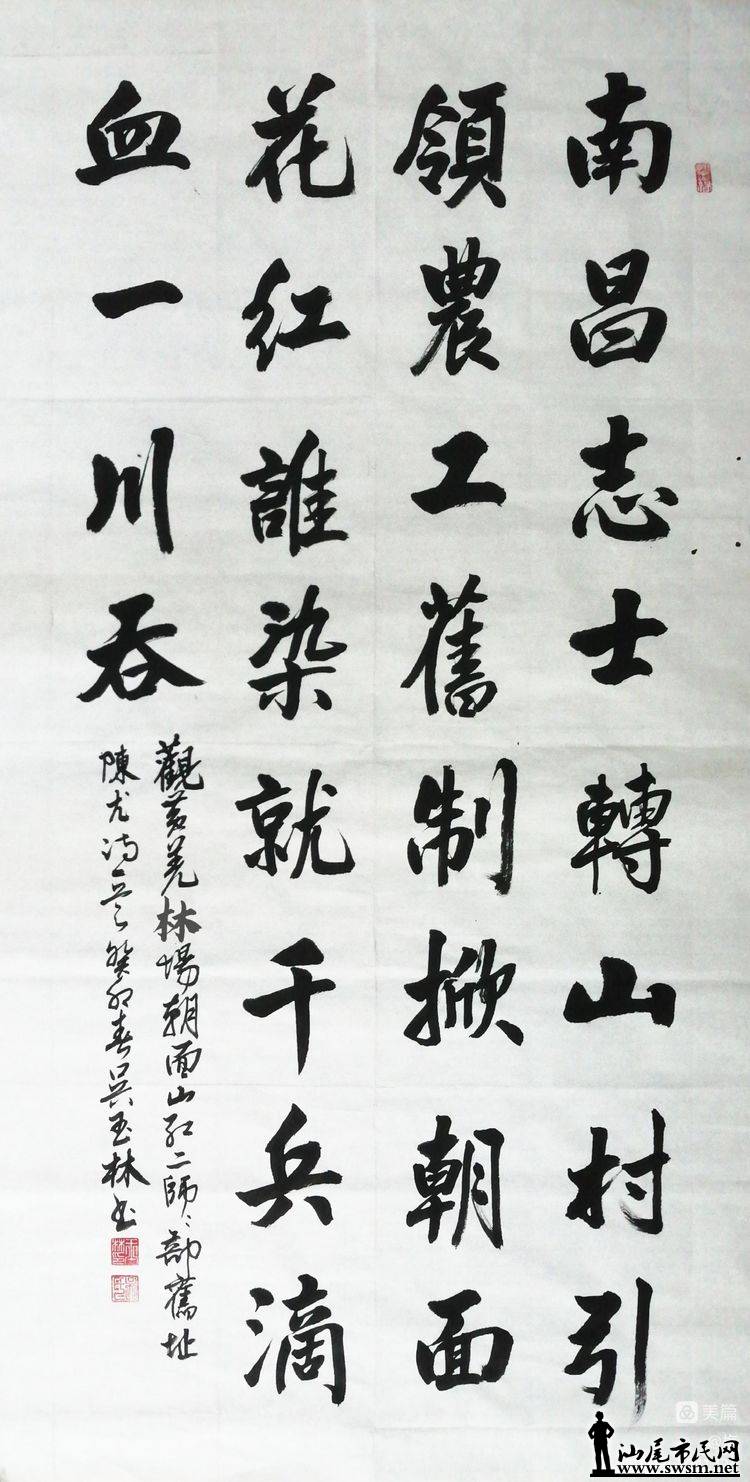 南昌志士轉山村引
領農工舊制掀朝面
花红誰染就千兵滴
血一川吞
觀黄羌林場朝面山红二師師部舊址
陳尤鴻並之癸卯春吴玉林書
美篇
汕尾市民网
www.swsm.net